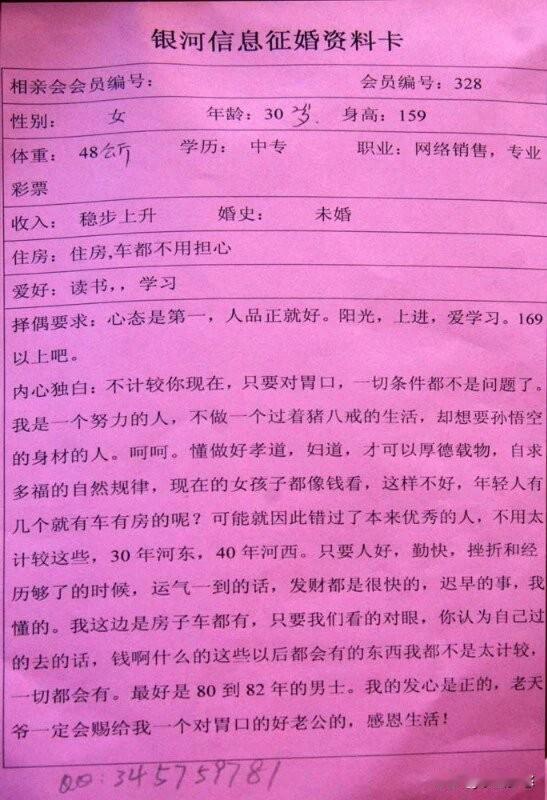 银河信息征婚资料卡
相亲会会员编号： 会员编号：328
性别： 女 年龄：30岁. 身高：159
体重：48公斤 学历：中专 职业：网络销售，专业
彩票
收入：稳步上升 婚史： 未婚
住房：住房,车都不用担心
爱好：读书，，学习
择偶要求：心态是第一，人品正就好。阳光，上进，爱学习。169
以上吧。
内心独白：不计较你现在，只要对胃口，一切条件都不是问题了。
我是一个努力的人，不做一个过着猪八戒的生活，却想要孙悟空
的身材的人。呵呵。懂做好孝道，妇道，才可以厚德载物，自求
多福的自然规律，现在的女孩子都像钱看，这样不好，年轻人有
几个就有车有房的呢？可能就因此错过了本来优秀的人，不用太
计较这些，30年河东，40年河西。只要人好，勤快，挫折和经
历够了的时候，运气一到的话，发财都是很快的，迟早的事，我
懂的。我这边是房子车都有，只要我们看的对眼，你认为自己过
的去的话，钱啊什么的这些以后都会有的东西我都不是太计较，
一切都会有。最好是80到82年的男士。我的发心是正的，老天
爷一定会赐给我一个对胃口的好老公的，感恩生活！
QQ：345759781